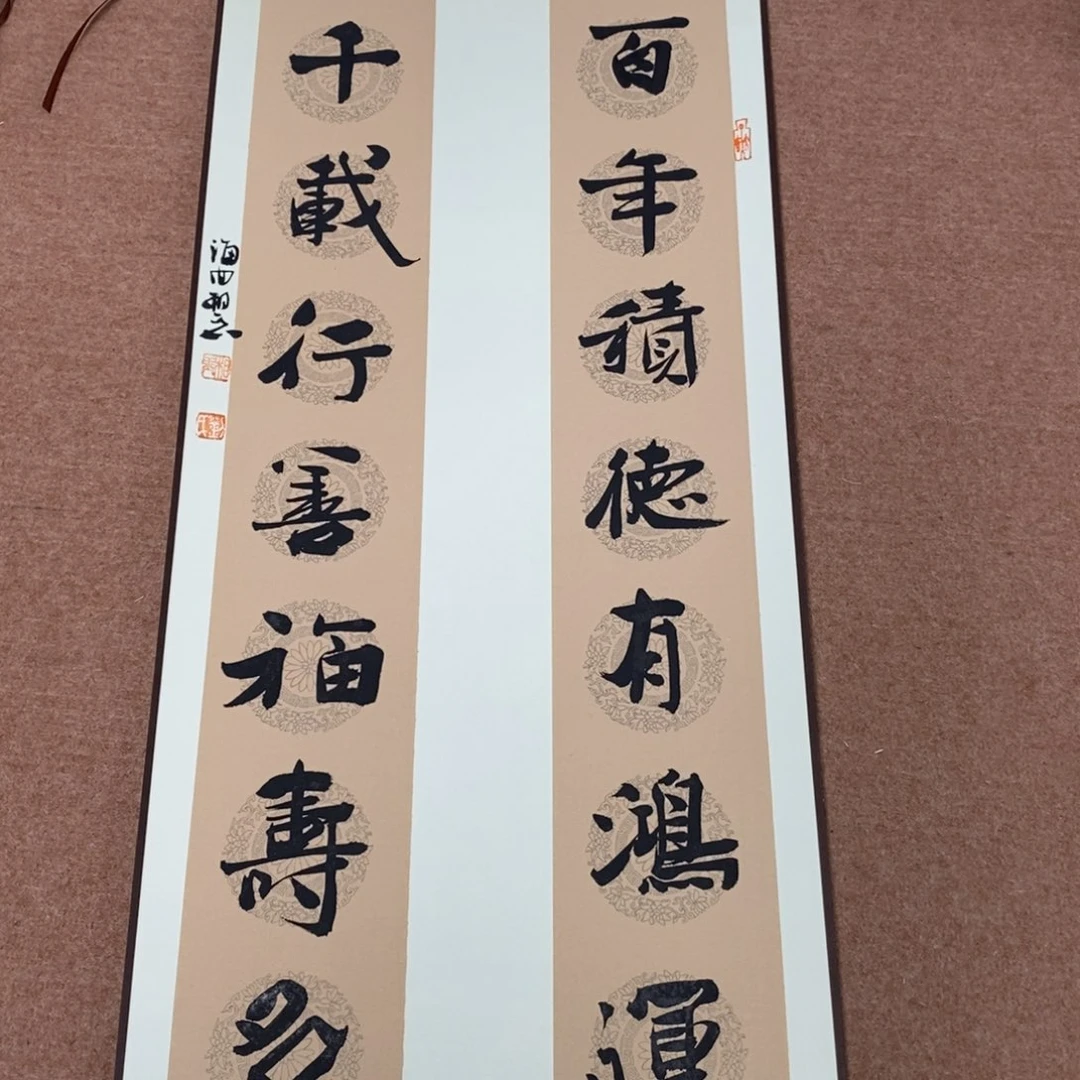 百年積德有鴻運
千載行善福壽多
海西